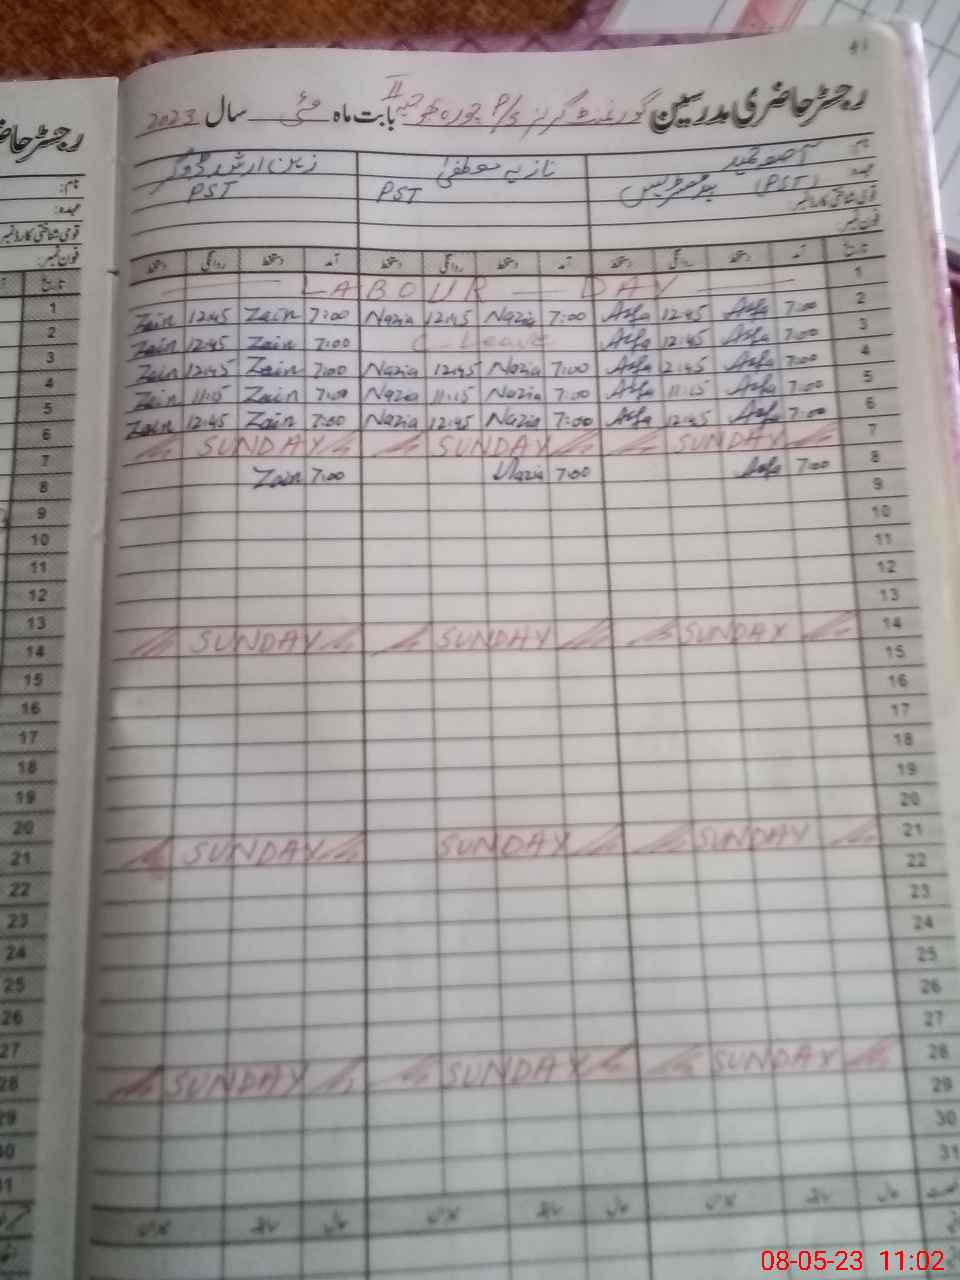 41
رجسٹر حاضری مدرسین گورنمنٹ گرلز P/S II بابت ماہ مئی سال 2023
نام: آصفہ نازیہ مصطفیٰ زین
عہدہ: ہیڈ مسٹریس (PST) PST PST
قومی شناختی کارڈ نمبر
فون نمبر:
تاریخ آمد دستخط روانگی دستخط آمد دستخط روانگی دستخط آمد دستخط روانگی دستخط
LABOUR DAY 1
Zain 12:45 Zain 7:00 Nazia 12:45 Nazia 7:00 Asfa 12:45 Asfa 7:00 2
Zain 12:45 Zain 7:00 C-Leave Asfa 12:45 Asfa 7:00 3
Zain 12:45 Zain 7:00 Nazia 12:45 Nazia 7:00 Asfa 12:45 Asfa 7:00 4
Zain 11:15 Zain 7:00 Nazia 11:15 Nazia 7:00 Asfa 11:15 Asfa 7:00 5
Zain 12:45 Zain 7:00 Nazia 12:45 Nazia 7:00 Asfa 12:45 Asfa 7:00 6
SUNDAY SUNDAY SUNDAY 7
Zain 7:00 Nazia 7:00 Asfa 7:00 8
9
10
11
12
13
SUNDAY SUNDAY SUNDAY 14
15
16
17
18
19
20
SUNDAY SUNDAY SUNDAY 21
22
23
24
25
26
27
SUNDAY SUNDAY SUNDAY 28
29
30
31
حال سابقہ میزان حال سابقہ میزان حال سابقہ میزان
رجسٹر حاضری
نام:
عہدہ:
قومی شناختی کارڈ نمبر
فون نمبر:
تاریخ
1
2
3
4
5
6
7
8
9
10
11
12
13
14
15
16
17
18
19
20
21
22
23
24
25
26
27
28
29
30
31
08-05-23 11:02